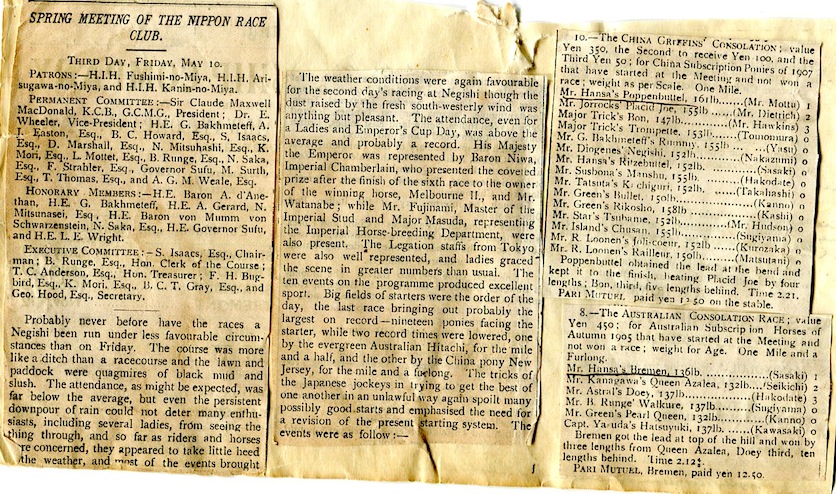 SPRING MEETING OF THE NIPPON RACE
CLUB.
THIRD DAY, FRIDAY, MAY 10.
PATRONS:—H.I.H. Fushimi-no-Miya, H.I.H. Ari-
sugawa-no-Miya, and H.I.H. Kanin-no-Miya.
PERMANENT COMMITTEE:—Sir Claude Maxwell
MacDonald, K.C.B., G.C.M.G., President; Dr. E.
Wheeler, Vice-President; H.E. G. Bakhmeteff, A.
J. Easton, Esq., B. C. Howard, Esq., S, Isaacs,
Esq., D. Marshall, Esq., N. Mitsuhashi, Esq., K.
Mori, Esq., L. Mottet, Esq., B. Runge, Esq., N. Saka,
Esq., F. Strahler, Esq., Governor Sufu, M. Surth,
Esq., T. Thomas, Esq., and A. G. M. Weale, Esq.
HONORARY MEMBERS:—H.E. Baron A. d'Ane-
than, H.E. G. Bakhmeteff, H.E. A. Gerard, N.
Mitsunasei, Esq., H.E. Baron von Mumm von
Schwarzenstein, N. Saka, Esq., H.E. Governor Sufu,
and H.E. L. E. Wright.
EXECUTIVE COMMITTEE:—S. Isaacs, Esq., Chair-
man; B. Runge, Esq., Hon. Clerk of the Course;
T. C. Anderson, Esq., Hon. Treasurer; F. H. Bug-
bird, Esq., K. Mori, Esq., B. C. T. Gray, Esq., and
Geo. Hood, Esq., Secretary.
Probably never before have the races a
Negishi been run under less favourable circum-
stances than on Friday. The course was more
like a ditch than a racecourse and the lawn and
paddock were quagmires of black mud and
slush. The attendance, as might be expected, was
far below the average, but even the persistent
downpour of rain could not deter many enthu-
siasts, including several ladies, from seeing the
thing through, and so far as riders and horses
re concerned, they appeared to take little heed
the weather, and most of the events brought
The weather conditions were again favourable
for the second day's racing at Negishi though the
dust raised by the fresh south-westerly wind was
anything but pleasant. The attendance, even for
a Ladies and Emperor's Cup Day, was above the
average and probably a record. His Majesty
the Emperor was represented by Baron Niwa,
Imperial Chamberlain, who presented the coveted
prize after the finish of the sixth race to the owner
of the winning horse, Melbourne II., and Mr.
Watanabe; while Mr. Fujinami, Master of the
Imperial Stud and Major Masuda, representing
the Imperial Horse-breeding Department, were
also present. The Legation staffs from Tokyo
were also well represented, and ladies graced
the scene in greater numbers than usual. The
ten events on the programme produced excellent
sport. Big fields of starters were the order of the
day, the last race bringing out probably the
largest on record—nineteen ponies facing the
starter, while two record times were lowered, one
by the evergreen Australian Hitachi, for the mile
and a half, and the other by the China pony New
Jersey, for the mile and a furlong. The tricks of
the Japanese jockeys in trying to get the best of
one another in an unlawful way again spoilt many
possibly good starts and emphasised the need for
a revision of the present starting system. The
events were as follow:—
10.—The CHINA GRIFFINS' CONSOLATION; value
Yen 350, the Second to receive Yen 100, and the
Third Yen 50; for China Subscription Ponies of 1907
that have started at the Meeting and not won a
race; weight as per Scale. One Mile.
Mr. Hansa's Poppenbuttel, 161lb......(Mr. Mottu) 1
Mr. Jorrocks' Placid Joe, 155lb......(Mr. Dietrich) 2
Major Trick's Bon, 147lb......(Mr. Hawkins) 3
Major Trick's Trompette, 153lb......(Tomomura) 0
Mr. G. Bakhmeteff's Rummy, 155lb......(Yasu) 0
Mr. Diogenes' Negishi, 152lb......(Nakazumi) 0
Mr. Hansa's Ritzebuttel, 155lb......(Sasaki) 0
Mr. Susbona's Manshu, 155lb......(Hakodate) 0
Mr. Tatsuta's Kachiguri, 152lb......(Takahashi) 0
Mr. Green's Bullet, 150lb......(Kanno) 0
Mr. Green's Rikosho, 158lb......(Kashi) 0
Mr. Star's Tsubame, 152lb......(Mr. Hudson) 0
Mr. Island's Chusan, 155lb......(Sugiyama) 0
Mr. R. Loonen's Joli-coeur, 152lb......(Kurozaka) 0
Mr. R. Loonen's Railleur, 150lb......(Matsutani) 0
Poppenbuttel obtained the lead at the bend and
kept it to the finish, beating Placid Joe by four
lengths; Bon, third, five lengths behind. Time 2.21.
PARI MUTUEL paid yen 12 50 on the stable.
8.—The AUSTRALIAN CONSOLATION RACE; value
Yen 450; for Australian Subscription Horses of
Autumn 1905 that have started at the Meeting and
not won a race; weight for Age. One Mile and a
Furlong.
Mr. Hansa's Bremen, 136lb......(Sasaki) 1
Mr. Kanagawa's Queen Azalea, 132lb...(Seikichi) 2
Mr. Astral's Doey, 137lb......(Hakodate) 3
Mr. R. Runge' Walkure, 137lb......(Sugiyama) 0
Mr. Green's Pearl Queen, 132lb......(Kanno) 0
Capt. Yasuda's Hatsuyuki, 137lb......(Kawasaki) 0
Bremen got the lead at top of the hill and won by
three lengths from Queen Azalea, Doey third, ten
lengths behind. Time 2.12⅘.
PARI MUTUEL, Bremen, paid yen 12.50.